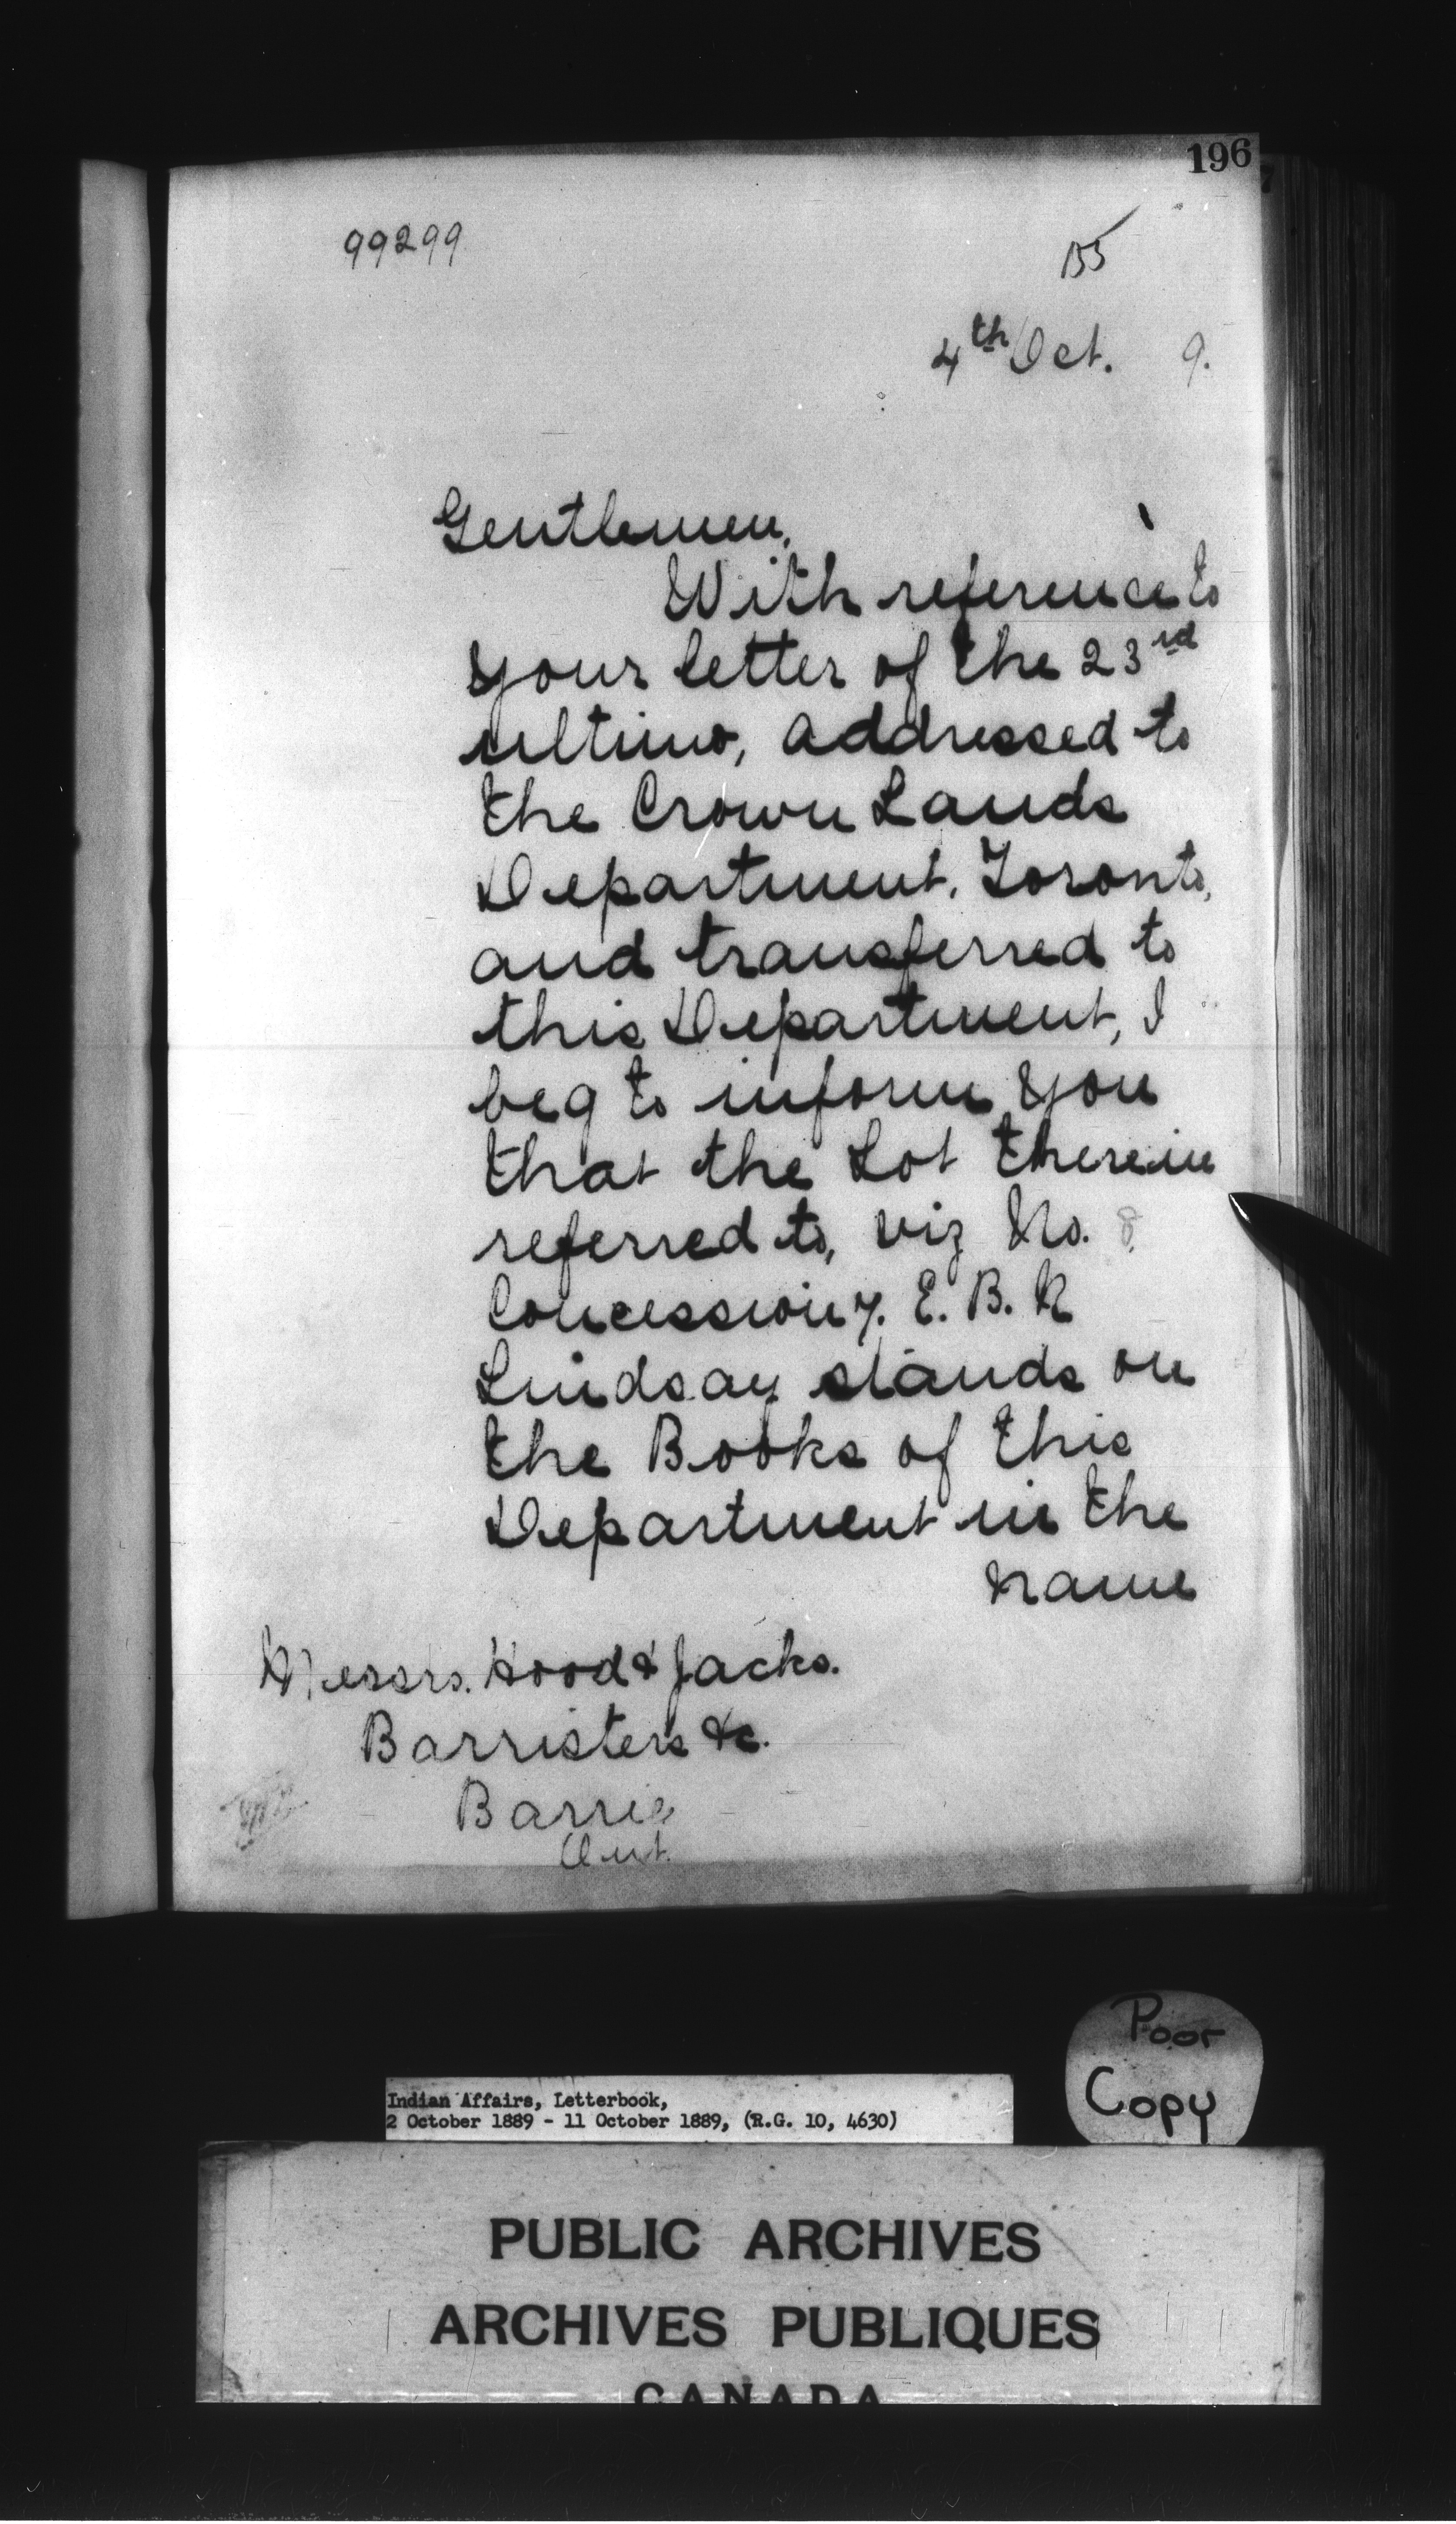 196
99299
4th Oct. 9.
Gentlemen,
With reference to
your letter of the 23rd
ultimo, addressed to
the Crown Lands
Department, Toronto,
and transferred to
this Department, I
beg to inform you
that the Lot therein
referred to, viz No. 8,
Concession 7. E. B. R
Lindsay stands on
the Books of this
Department in the
name
Messrs. Hood & Jacks.
Barristers &c.
Barrie
Ont.
Poor
Copy
Indian Affairs, Letterbook,
2 October 1889 - 11 October 1889, (R.G. 10, 4630)
PUBLIC ARCHIVES
ARCHIVES PUBLIQUES
CANADA